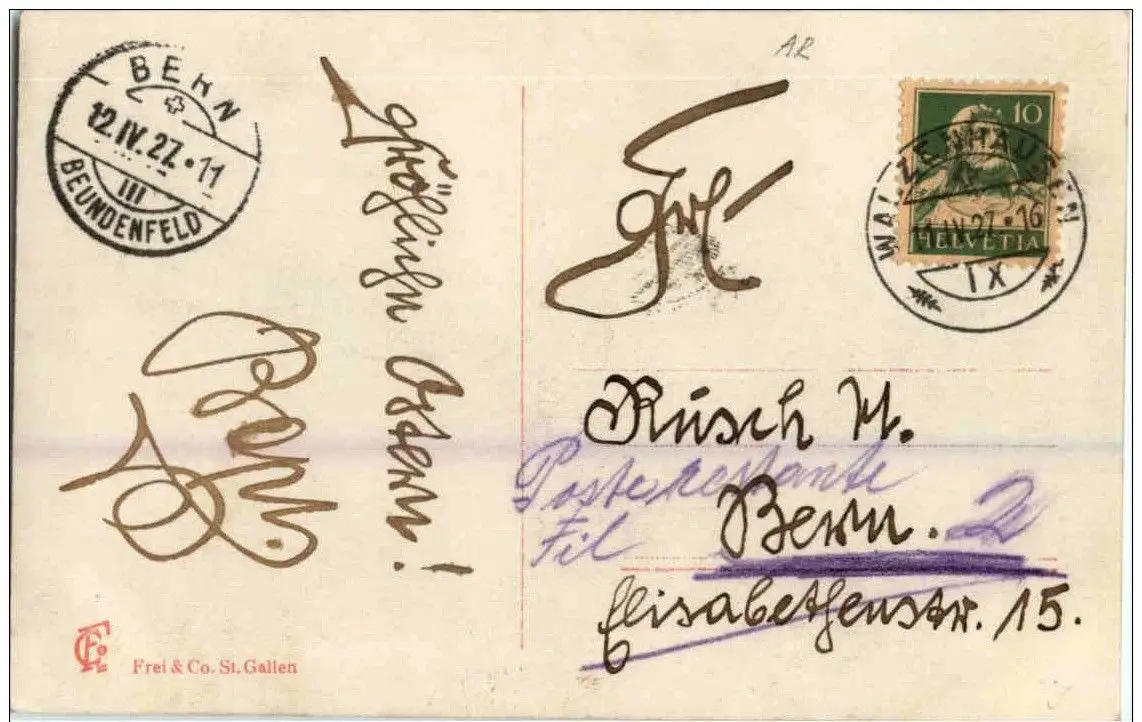 BERN
12.IV.27.11
III
BEUNDENFELD
Fröhliche Ostern!
Frei & Co. St. Gallen
AR
Frl.
10
HELVETIA
WALZENHAUSEN
11.IV.27.16
IX
Rüsch H.
Poste restante
Fil
Bern. 2
Elisabethenstr. 15.